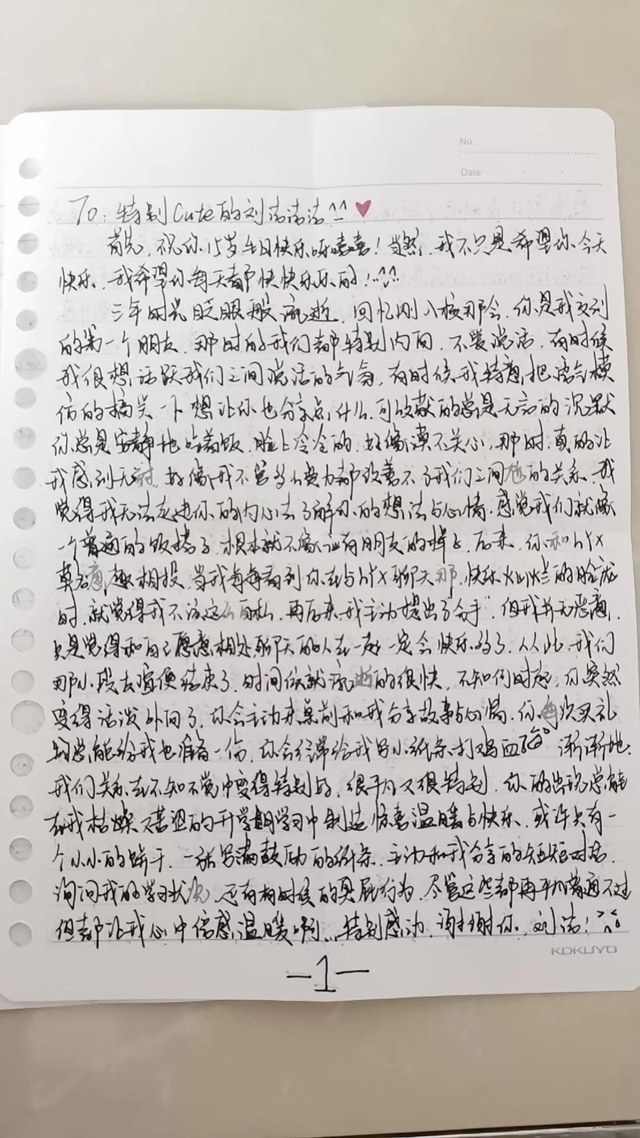 No.
Date
To: 特别Cute的刘洁洁洁^_^ ♥
首先,祝你15岁生日快乐呀嘻嘻!当然,我不只是希望你今天
快乐,我希望你每天都快快乐乐的!^_^
三年时光眨眼般流逝,回忆刚入校那会,你是我交到
的第一个朋友,那时的我们都特别内向,不爱说话,有时候
我很想活跃我们之间说话的气氛,有时候我特意把语气模
仿的搞笑一下想让你也分享点什么,可贡献的总是无言的沉默
你总是安静地吃着饭,脸上冷冷的,好像漠不关心,那时,真的让
我感到无耐,好像我不管多么努力都改善不了我们之间的关系,我
觉得我无法走进你的内心去了解你的想法与心情,感觉我们就像
一个普通的饭搭子,根本就不像
后来,你和hyx
相投,当我每每看到你在与hyx聊天那快乐灿烂的脸庞
时,就觉得我不该这么自私,再后来,我主动提出了“分手”,但我并无恶意,
只是觉得和自己愿意相处聊天的人在一起一定会快乐的了,从此,我们
那小段友谊便结束了,时间依就流逝的很快,不知何时起,你突然
变得活泼外向了,你会主动来桌前和我分享故事与心情,你每次买礼
物总能给我也准备一份,你会经常给我写小纸条,打鸡血,渐渐地
我们关系在不知不觉中变得特别好,很平凡又很特别,你的出现总能
在我枯燥又苦涩的升学期学习中制造惊喜温暖与快乐,或许只有一
个小小的饼干,一张写满鼓励的纸条,主动和我分享的短短对话,
询问我的学习状况,还有有时候的
行为,尽管这些都再平凡普通不过
但都让我心中倍感温暖啊,,,特别感动,谢谢你,刘洁!
KOKUYO
—1—